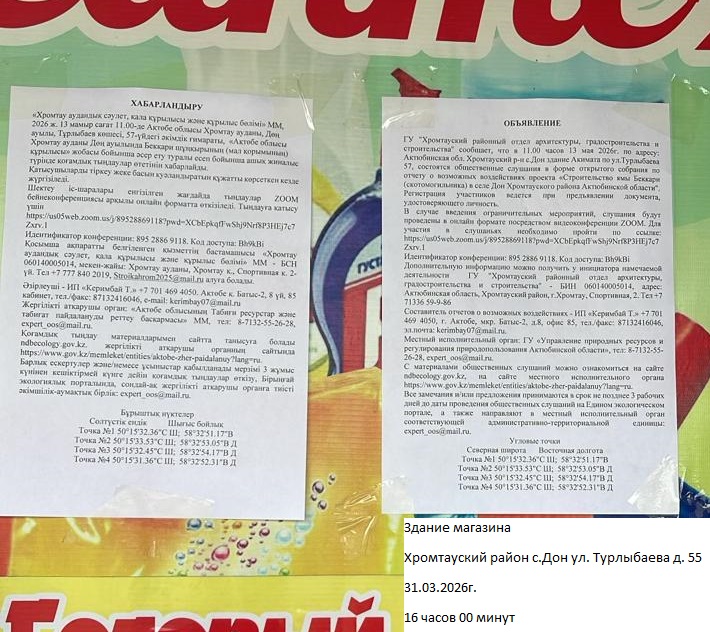 ХАБАРЛАНДЫРУ
«Хромтау аудандық сәулет, қала құрылысы және құрылыс бөлімі» ММ,
2026 ж. 13 мамыр сағат 11.00-де Ақтөбе облысы Хромтау ауданы, Дөң
ауылы, Тұрлыбаев көшесі, 57-үйдегі әкімдік ғимараты, «Ақтөбе облысы
Хромтау ауданы Дөң ауылында Беккари шұңқырының (мал қорымының)
құрылысы» жобасы бойынша әсер ету туралы есеп бойынша ашық жиналыс
түрінде қоғамдық тыңдаулар өтетінін хабарлайды.
Қатысушыларды тіркеу жеке басын куәландыратын құжатты көрсеткен кезде
жүргізіледі.
Шектеу іс-шаралары енгізілген жағдайда тыңдаулар ZOOM
бейнеконференциясы арқылы онлайн форматта өткізіледі. Тыңдауға қатысу
үшін
https://us05web.zoom.us/j/89528869118?pwd=XCbEpkqfFwShj9Nrf8P3HEj7c7
Zxrv.1
Идентификатор конференции: 895 2886 9118. Код доступа: Bh9kBi
Қосымша ақпаратты белгіленген қызметтің бастамашысы «Хромтау
аудандық сәулет, қала құрылысы және құрылыс бөлімі» ММ - БСН
060140005014, мекен-жайы: Хромтау ауданы, Хромтау қ., Спортивная к. 2-
үй. Тел +7 777 840 2019, Stroikahrom2025@mail.ru алуға болады.
Әзірлеуші - ИП «Керимбай Т.» +7 701 469 4050. Ақтөбе к, Батыс-2, 8 үй, 85
кабинет, тел./факс: 87132416046, e-mail: kerimbay07@mail.ru
Жергілікті атқарушы орган: «Ақтөбе облысының Табиғи ресурстар және
табиғат пайдалануды реттеу басқармасы» ММ, тел: 8-7132-55-26-28,
expert_oos@mail.ru.
Қоғамдық тыңдау материалдарымен сайтта танысуға болады
ndbecology.gov.kz. жергілікті атқарушы органның сайтында
https://www.gov.kz/memleket/entities/aktobe-zher-paidalanuy?lang=ru.
Барлық ескертулер және/немесе ұсыныстар қабылданады мерзімі 3 жұмыс
күнінен кешіктірмей күнге дейін қоғамдық тыңдаулар өткізу, Бірыңғай
экологиялық порталында, сондай-ақ жергілікті атқарушы органға тиісті
әкімшілік-аумақтық бірлік: expert_oos@mail.ru.
Бұрыштық нүктелер
Солтүстік ендік Шығыс бойлық
Точка №1 50°15'32.36"С Ш; 58°32'51.17"В
Точка №2 50°15'33.53"С Ш; 58°32'53.05"В Д
Точка №3 50°15'32.45"С Ш; 58°32'54.17"В Д
Точка №4 50°15'31.36"С Ш; 58°32'52.31"В Д
ОБЪЯВЛЕНИЕ
ГУ "Хромтауский районный отдел архитектуры, градостроительства и
строительства" сообщает, что в 11.00 часов 13 мая 2026г. по адресу:
Актюбинская обл. Хромтауский р-н с.Дон здание Акимата по ул.Турлыбаева
57, состоятся общественные слушания в форме открытого собрания по
отчету о возможных воздействиях проекта «Строительство ямы Беккари
(скотомогильника) в селе Дон Хромтауского района Актюбинской области".
Регистрация участников ведется при предъявлении документа,
удостоверяющего личность.
В случае введения ограничительных мероприятий, слушания будут
проведены в онлайн формате посредством видеоконференции ZOOM. Для
участия в слушаньях необходимо пройти по ссылке:
https://us05web.zoom.us/j/89528869118?pwd=XCbEpkqfFwShj9Nrf8P3HEj7c7
Zxrv.1
Идентификатор конференции: 895 2886 9118. Код доступа: Bh9kBi
Дополнительную информацию можно получить у инициатора намечаемой
деятельности ГУ "Хромтауский районный отдел архитектуры,
градостроительства и строительства" - БИН 060140005014, адрес:
Актюбинская область, Хромтауский район, г.Хромтау, Спортивная, 2. Тел +7
71336 59-9-86
Составитель отчетов о возможных воздействиях - ИП «Керимбай Т.» +7 701
469 4050, г. Актобе, мкр. Батыс-2, д.8, офис 85, тел./факс: 87132416046,
эл.почта: kerimbay07@mail.ru
Местный исполнительный орган: ГУ «Управление природных ресурсов и
регулирования природопользования Актюбинской области», тел: 8-7132-55-
26-28, expert_oos@mail.ru.
С материалами общественных слушаний можно ознакомиться на сайте
ndbecology.gov.kz, на сайте местного исполнительного органа
https://www.gov.kz/memleket/entities/aktobe-zher-paidalanuy?lang=ru.
Все замечания и/или предложения принимаются в срок не позднее 3 рабочих
дней до даты проведения общественных слушаний на Едином экологическом
портале, а также направляют в местный исполнительный орган
соответствующей административно-территориальной единицы:
expert_oos@mail.ru.
Угловые точки
Северная широта Восточная долгота
Точка №1 50°15'32.36"С Ш; 58°32'51.17"В
Точка №2 50°15'33.53"С Ш; 58°32'53.05"В Д
Точка №3 50°15'32.45"С Ш; 58°32'54.17"В Д
Точка №4 50°15'31.36"С Ш; 58°32'52.31"В Д
Здание магазина
Хромтауский район с.Дон ул. Турлыбаева д. 55
31.03.2026г.
16 часов 00 минут